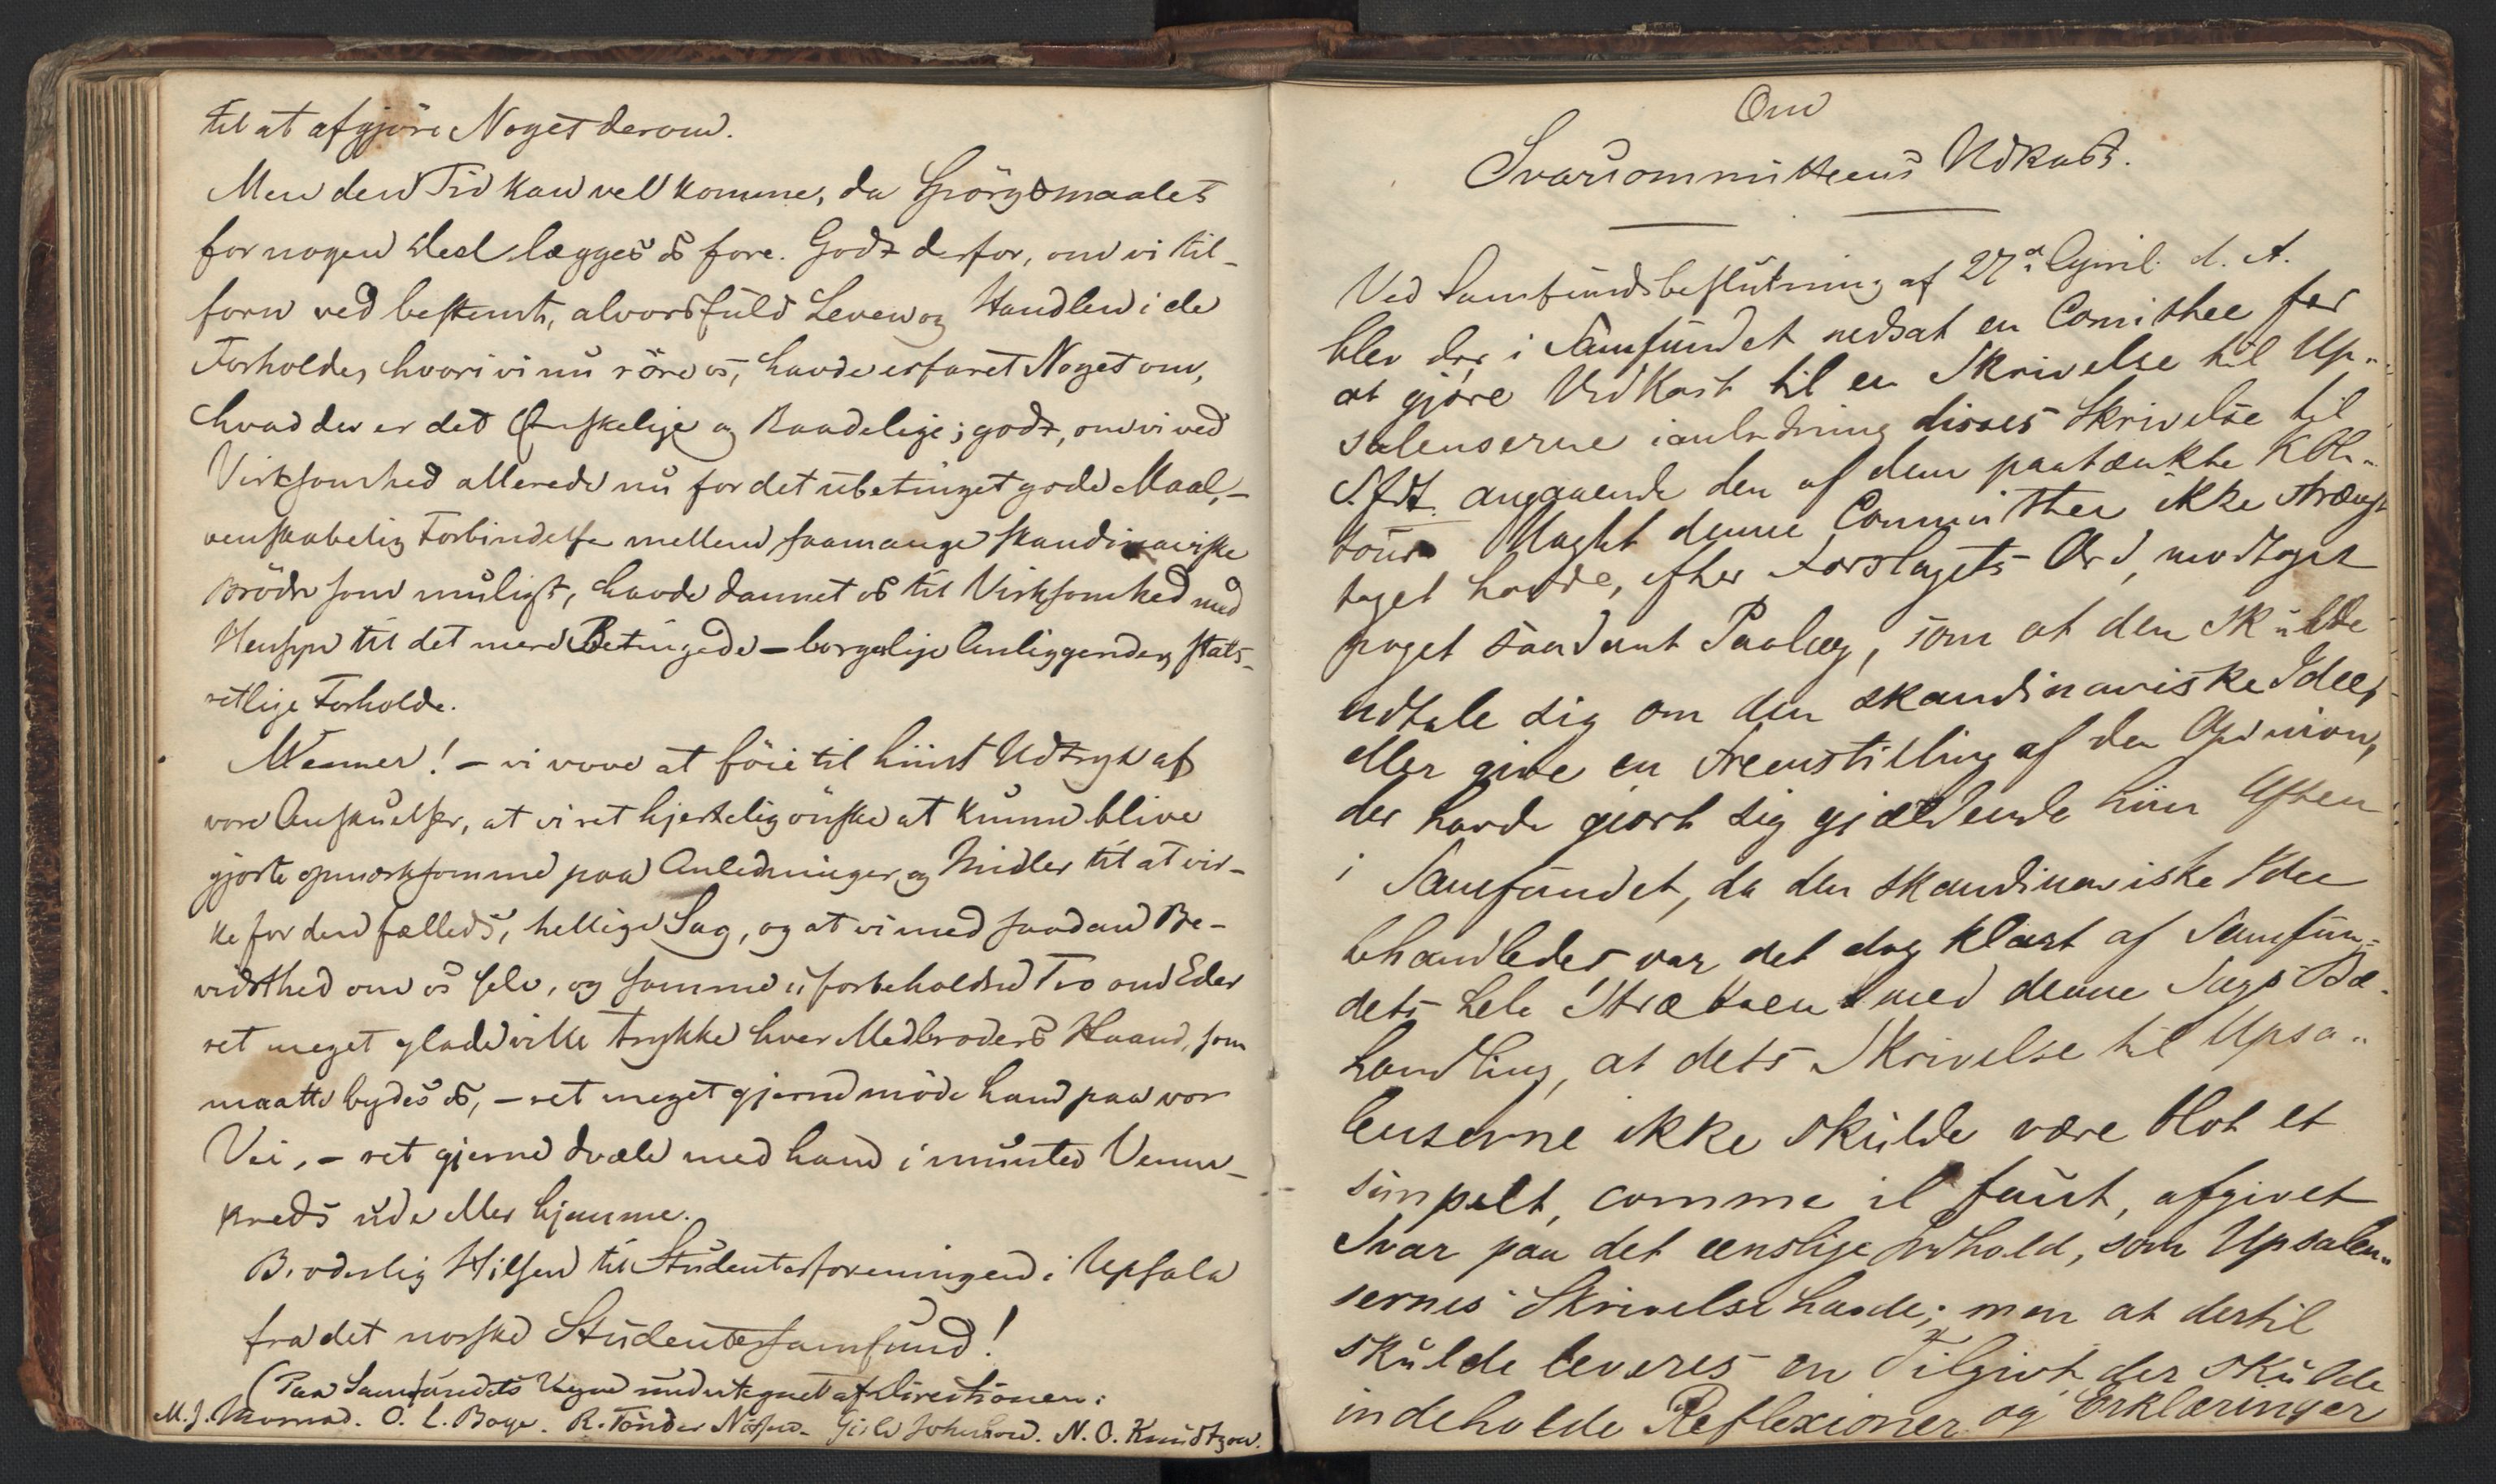 til at afgjøre Noget derom.
Men den Tid kan vel komme, da Spørgsmaalet
for nogen Deel lægges os fore. Godt derfor, om vi til-
forn ved bestemt, alvorsfuld Leven og Handlen i de
Forholde, hvori vi nu røre os, havde erfaret Noget om,
hvad der er det Ønskelige og Raadelige; godt, om vi ved
Virksomhed allerede nu for det ubetinget gode Maal, -
venskabelig Forbindelse mellem saamange skandinaviske
Brødre som muligt, havde dannet os til Virksomhed med
Hensyn til det mere Betingede - borgerlige Anliggender, stats-
retlige Forholde.
Venner! - vi vove at føie til hiint Udtryk af
vore Anskuelser, at vi ret hjertelig ønske at kunne blive
gjorte opmærksomme paa Anledninger og Midler til at vir-
ke for den fælleds, hellige Sag, og at vi med saadan Be-
vidsthed om os selv, og samme uforbeholdne Tro om Eder
ret meget glade ville trykke hver Medbroders Haand, som
maatte bydes os, - ret meget gjerne møde ham paa vor
Vei, - ret gjerne dvæle med ham i munter Venne-
kreds ude eller hjemme.
Broderlig Hilsen til Studenterforeningen i Upsala
fra det norske Studentersamfund!
(Paa Samfundets Vegne undertegnet af Directionen:
M. J. Monrad. O. L. Boye. R. Tønder Nissen. Johnson. N. O. Knudtzon.
Om
Svarcommitteens Udkast.
Ved Samfundsbeslutning af 27de April d. A.
blev der i Samfundet nedsat en Comithee for
at gjøre Udkast til en Skrivelse til Up-
salenserne i anledning disses Skrivelse til
S.fdt. angaaende den af dem paatænkte Kbh-
tour. Uagtet denne Committee ikke strængt
taget havde, efter Forslagets Ord, modtaget
noget saadant Paalæg, som at den skulde
udtale sig om den skandinaviske Idee,
eller give en Fremstilling af den Opinion,
der havde gjort sig gjældende hiin Aften
i Samfundet, da den skandinaviske Idee
behandledes var det dog klart af Samfun-
dets hele Stræben med denne Sags Be-
handling, at dets Skrivelse til Upsa-
lenserne ikke skulde være blot et
simpelt, comme il faut, afgivet
Svar paa det eenslige Indhold, som Upsalen-
sernes Skrivelse havde; men at dertil
skulde leveres en Tilgivt, der skulde
indeholde Reflexioner og Erklæringer